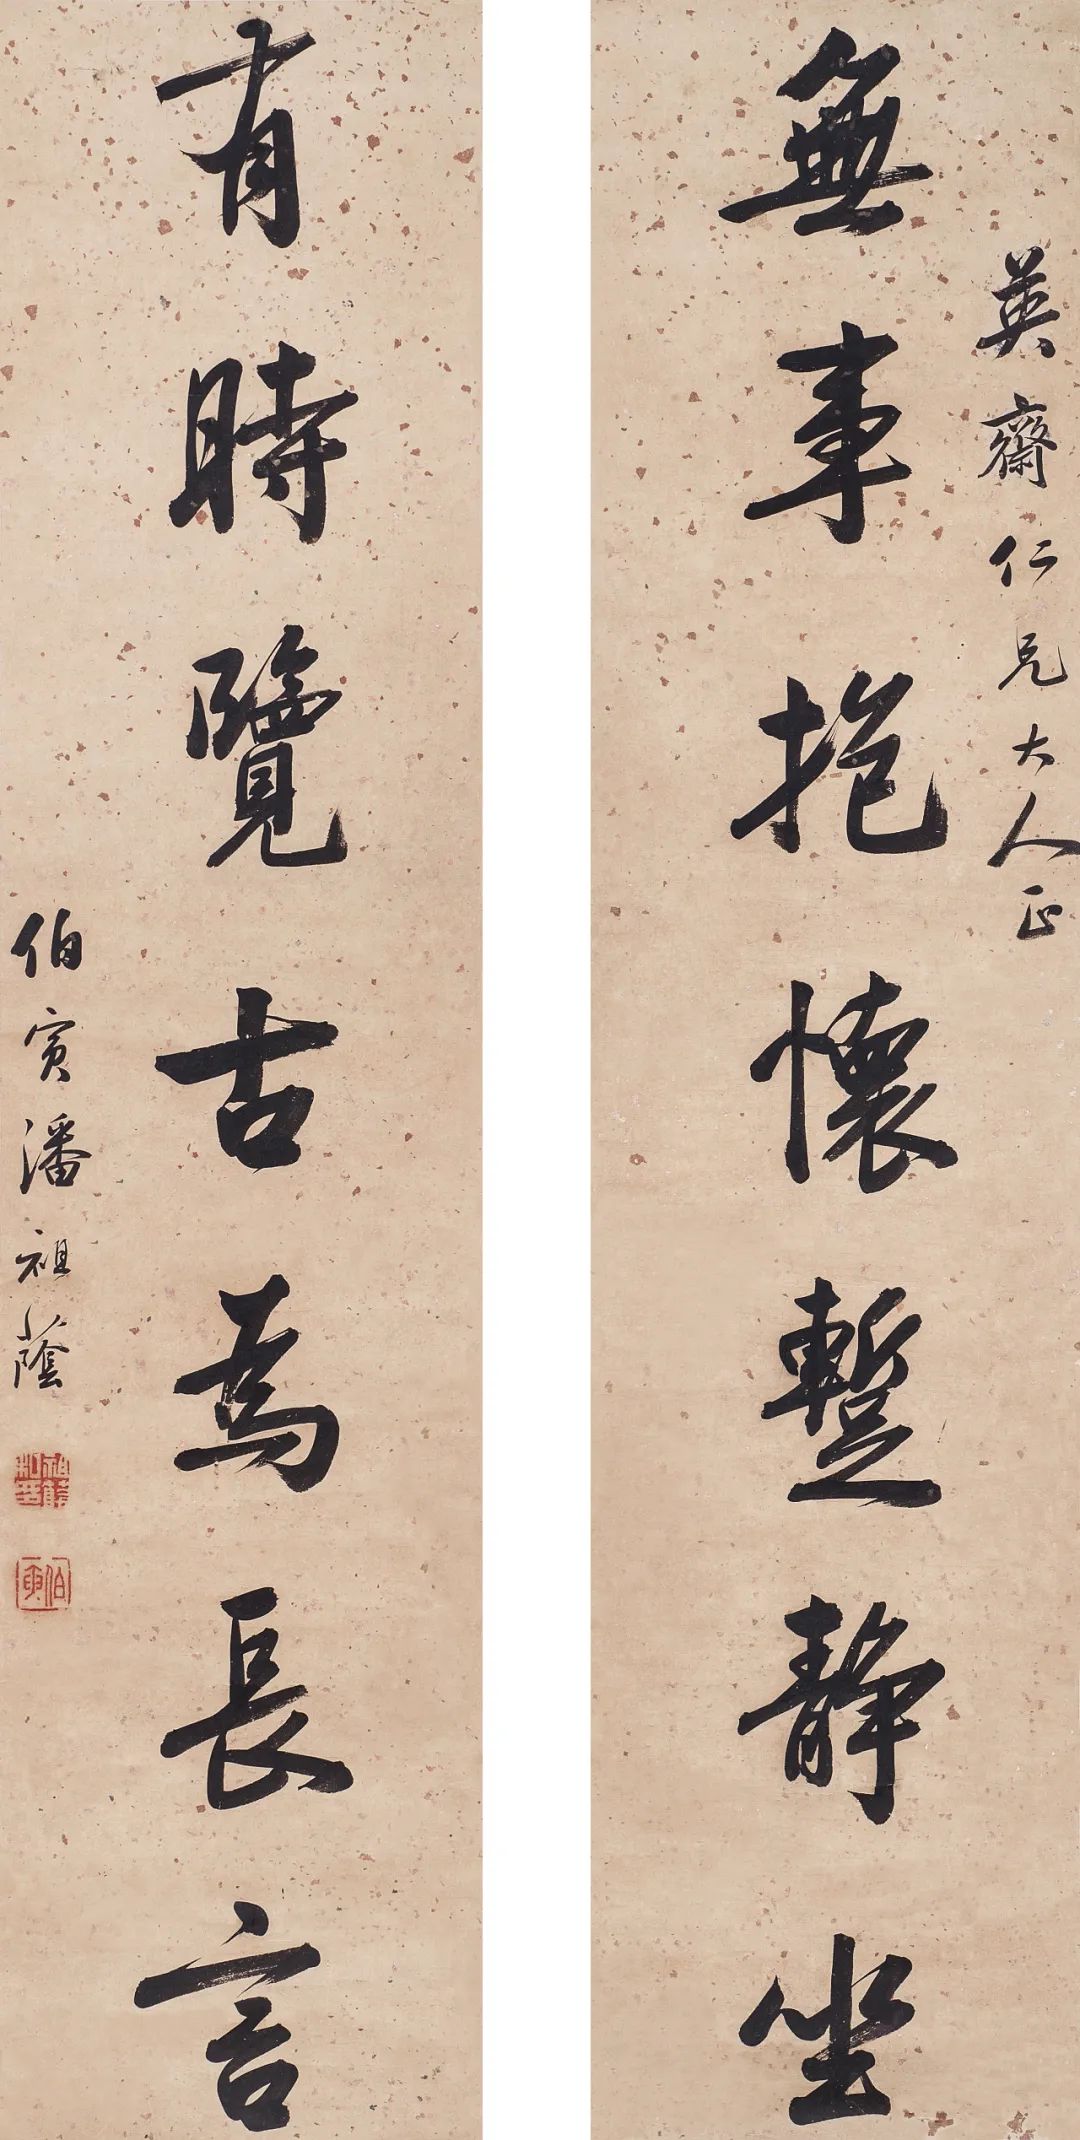 英齋仁兄大人正
無事抱懷蹔靜坐
有時覽古為長言
伯寅潘祖蔭
伯寅